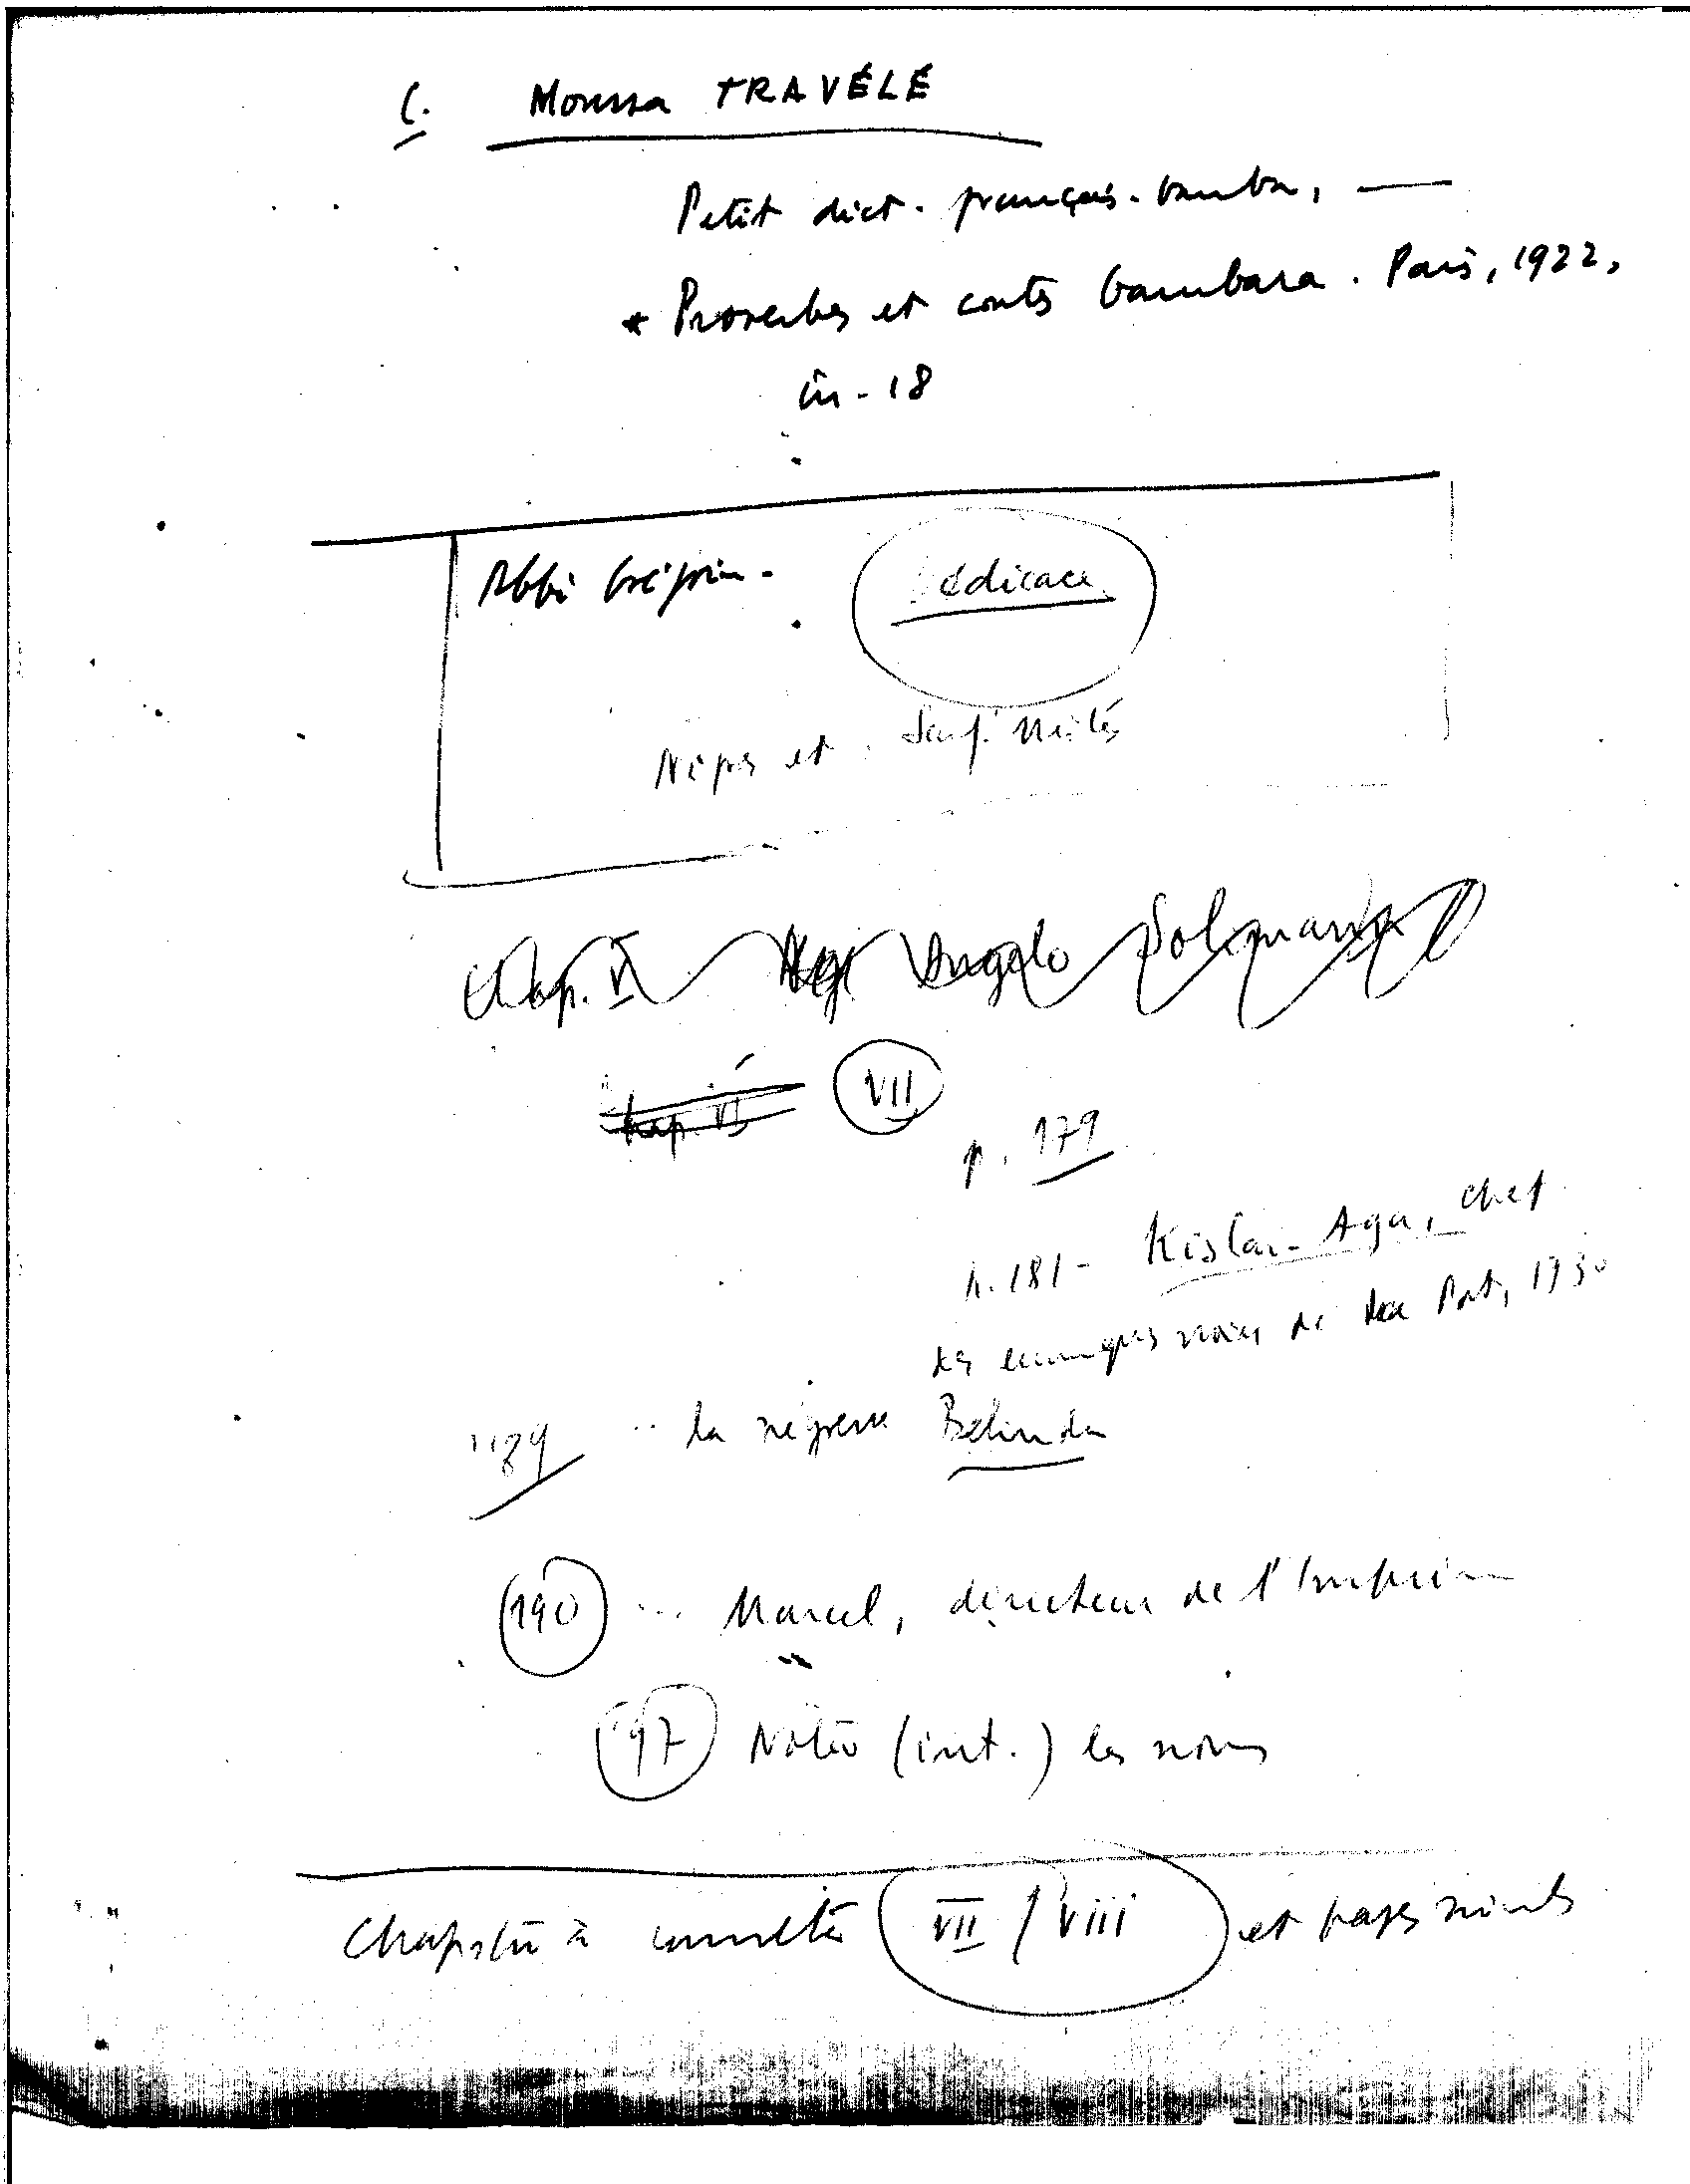 C. Moussa TRAVÉLÉ
Petit dict. français-bamba, —
* Proverbes et contes bambara. Paris, 1922,
in-18
Abbé Grégoire. Dédicace
et
Chap. VI Angelo Soliman
Chap. VI VII
p. 179
p. 181 - Kislar-Aga, chef
des eunuques noirs de la Port, 1730
189 .. la négresse Belinda
190 ... Marcel, directeur de l'Imprim
197 Noter (int.) les noms
Chapitre à consulter VII / viii et pages